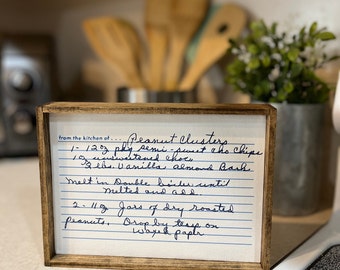 from the kitchen of... Peanut Clusters
1- 12oz pkg semi-sweet cho chips
1 oz unsweetened choc
2 lbs Vanilla Almond Bark
Melt in Double boiler until
melted and add
2- 11oz Jars of dry roasted
peanuts. Drop by tesp on
waxed paper